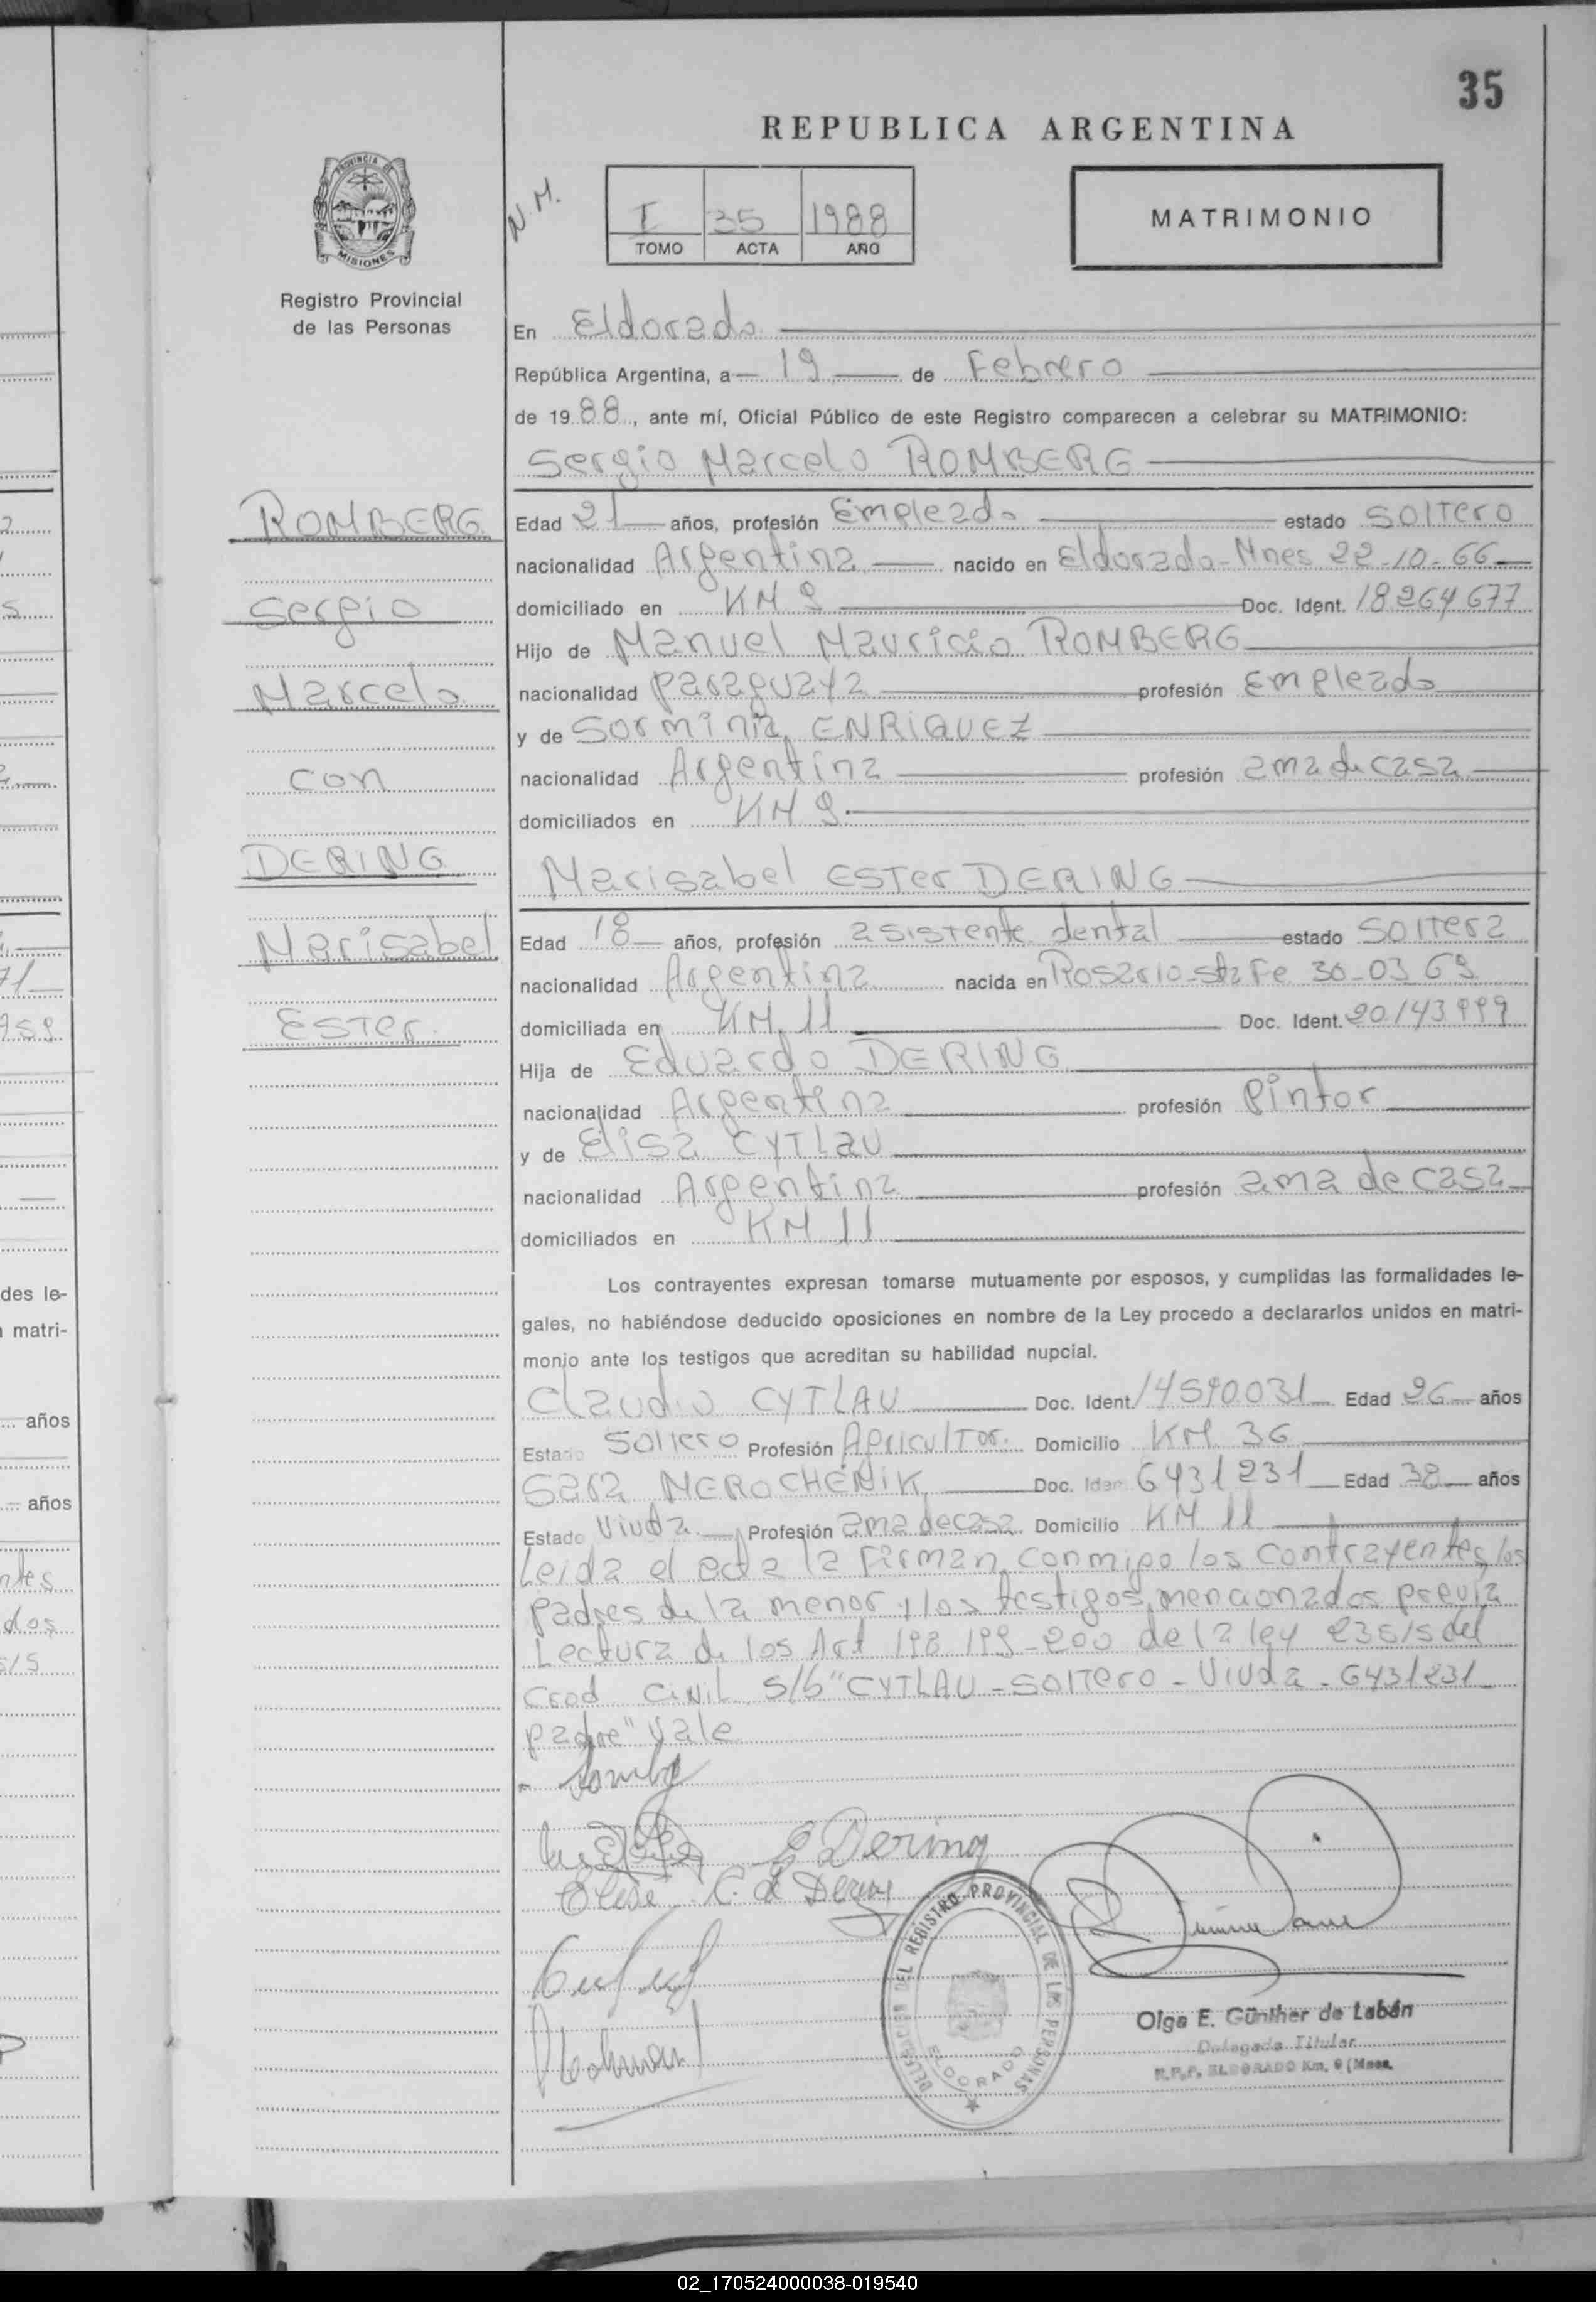 35
REPUBLICA ARGENTINA
PROVINCIA DE
MISIONES
Registro Provincial
de las Personas
N.M.
I 35 1988
TOMO ACTA AÑO
MATRIMONIO
En Eldorado
República Argentina, a 19 de Febrero
de 1988, ante mí, Oficial Público de este Registro comparecen a celebrar su MATRIMONIO:
Sergio Marcelo ROMBERG
ROMBERG
Sergio
Marcelo
con
DERING
Marisabel
Ester
Edad 21 años, profesión Empleado estado Soltero
nacionalidad Argentina nacido en Eldorado-Mnes 22-10-66
domiciliado en KM 9 Doc. Ident. 18264677
Hijo de Manuel Mauricio ROMBERG
nacionalidad paraguaya profesión Empleado
y de Sorminia ENRIQUEZ
nacionalidad Argentina profesión ama de casa
domiciliados en KM 9
Marisabel Ester DERING
Edad 18 años, profesión asistente dental estado Soltera
nacionalidad Argentina nacida en Rosario-Sta Fe 30-03 69
domiciliada en KM 11 Doc. Ident. 20143999
Hija de Eduardo DERING
nacionalidad Argentina profesión Pintor
y de Elisa CYTLAU
nacionalidad Argentina profesión ama de casa
domiciliados en KM 11
Los contrayentes expresan tomarse mutuamente por esposos, y cumplidas las formalidades le-
gales, no habiéndose deducido oposiciones en nombre de la Ley procedo a declararlos unidos en matri-
monio ante los testigos que acreditan su habilidad nupcial.
Claudio CYTLAU Doc. Ident 14590031 Edad 26 años
Estado Soltero Profesión Agricultor Domicilio KM 36
Sara NEROCHENIK Doc. Iden 6431231 Edad 38 años
Estado Viuda Profesión ama de casa Domicilio KM 11
Leida el acta la Firman conmigo los contrayentes, los
padres de la menor y los testigos mencionados previa
Lectura de los Art 198 199-200 de la ley 23515 del
Cod civil S/b "CYTLAU-Soltero-Viuda-6431231
padre" Vale
E Dering
Elisa C. de Dering
DELEGACION DEL REGISTRO PROVINCIAL DE LAS PERSONAS
ELDORADO
Olga E. Günther de Labán
Delegada Titular
R.P.P. ELDORADO Km. 9 (Mnes.
des le-
matri-
años
años
02_170524000038-019540